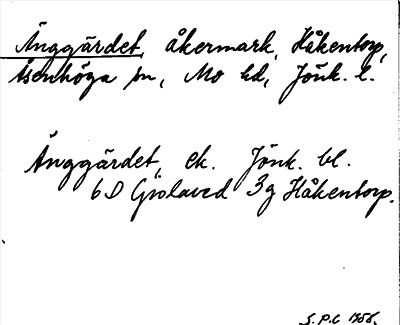 Änggärdet, åkermark, Håkentorp,
Åsenhöga sn, Mo hd, Jönk. l.
Änggärdet, ek. Jönk. bl.
6D Gislaved 3g Håkentorp.
S.P.C 1958.